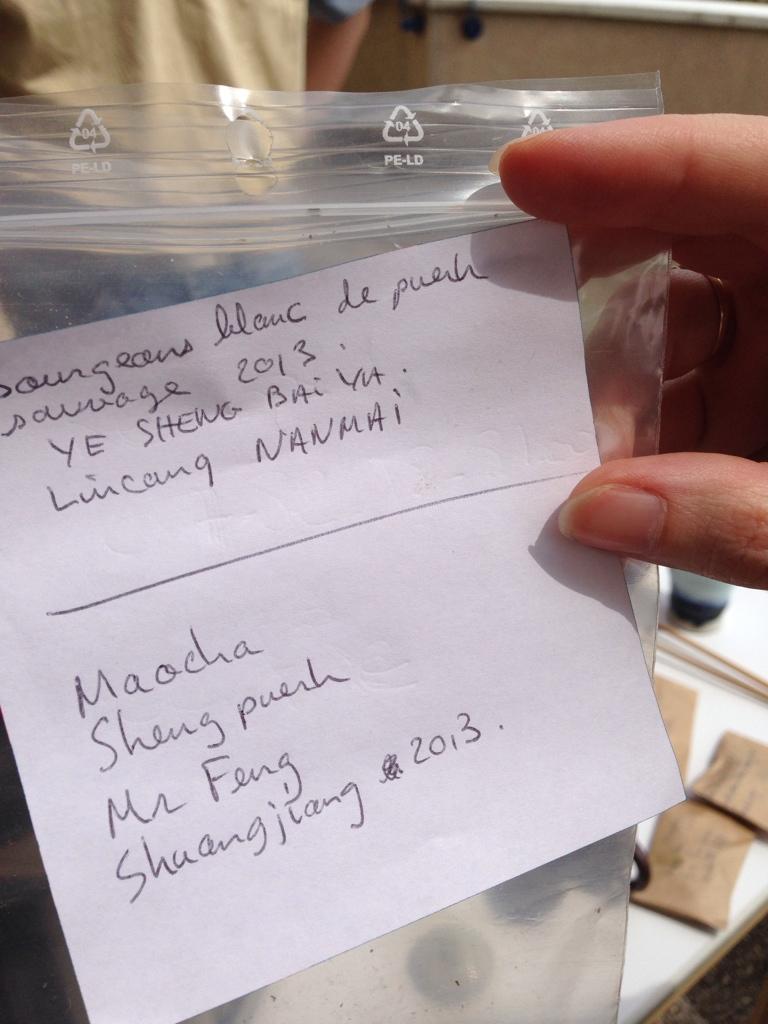 04 04 04
PE-LD PE-LD
bourgeons blanc de puerh
sauvage 2013.
YE SHENG BAI YA.
Lincang NANMAI
Maocha
Sheng puerh
Mr Feng
Shuangjiang 2013.